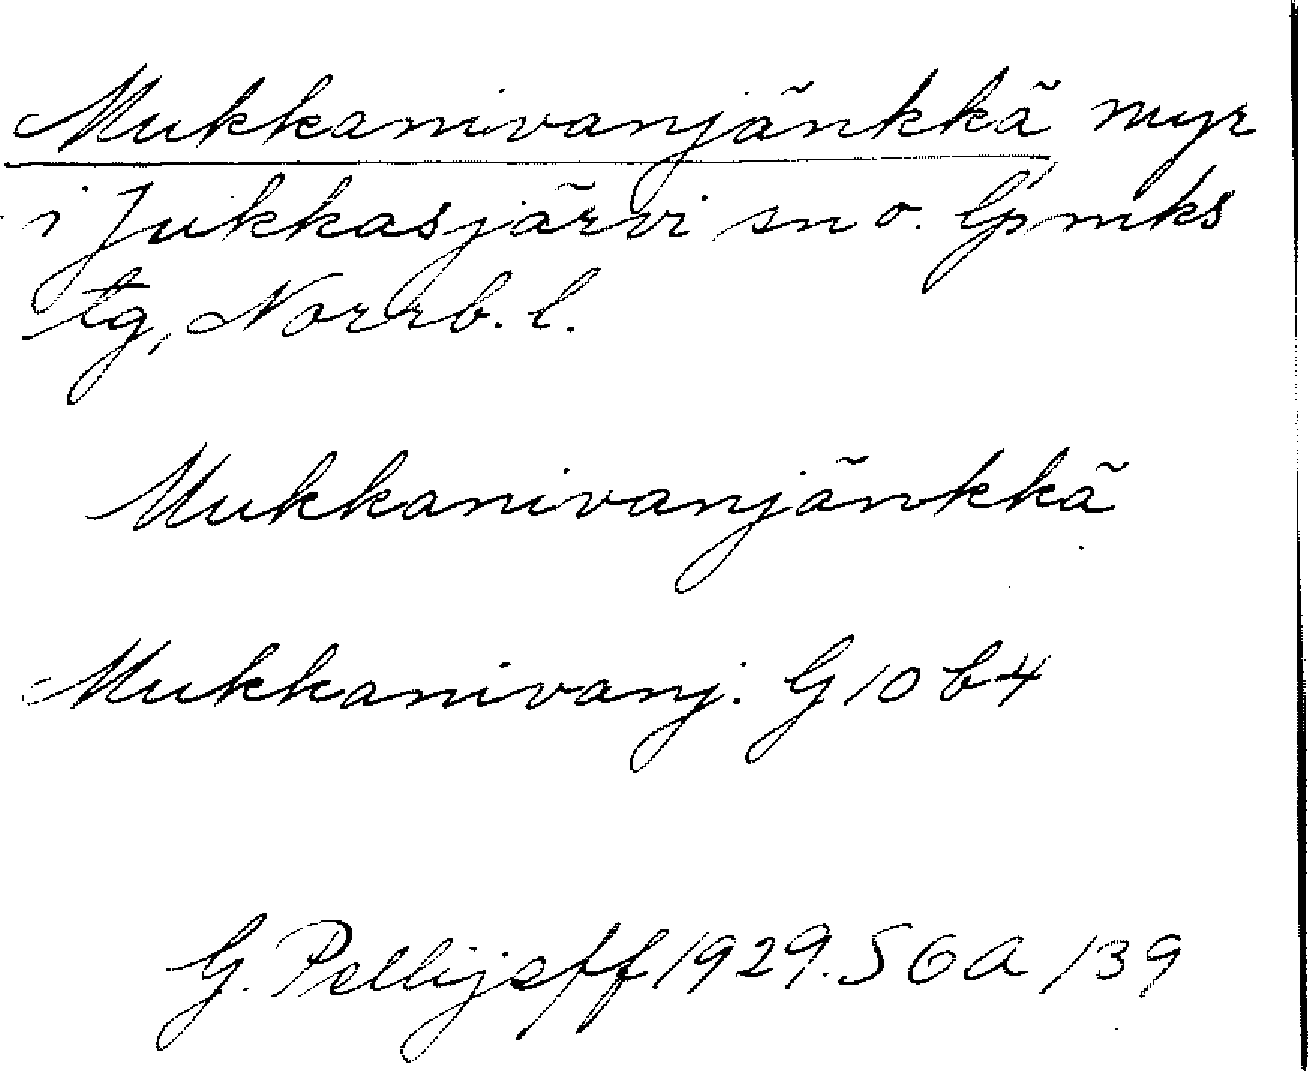 Mukkanivanjänkkä myr
i Jukkasjärvi sn o. Gpmks
tg, Norrb. l.
Mukkanivanjänkkä
Mukkanivanj. G 10 b4
G. Pellijeff 1929. SGA 139